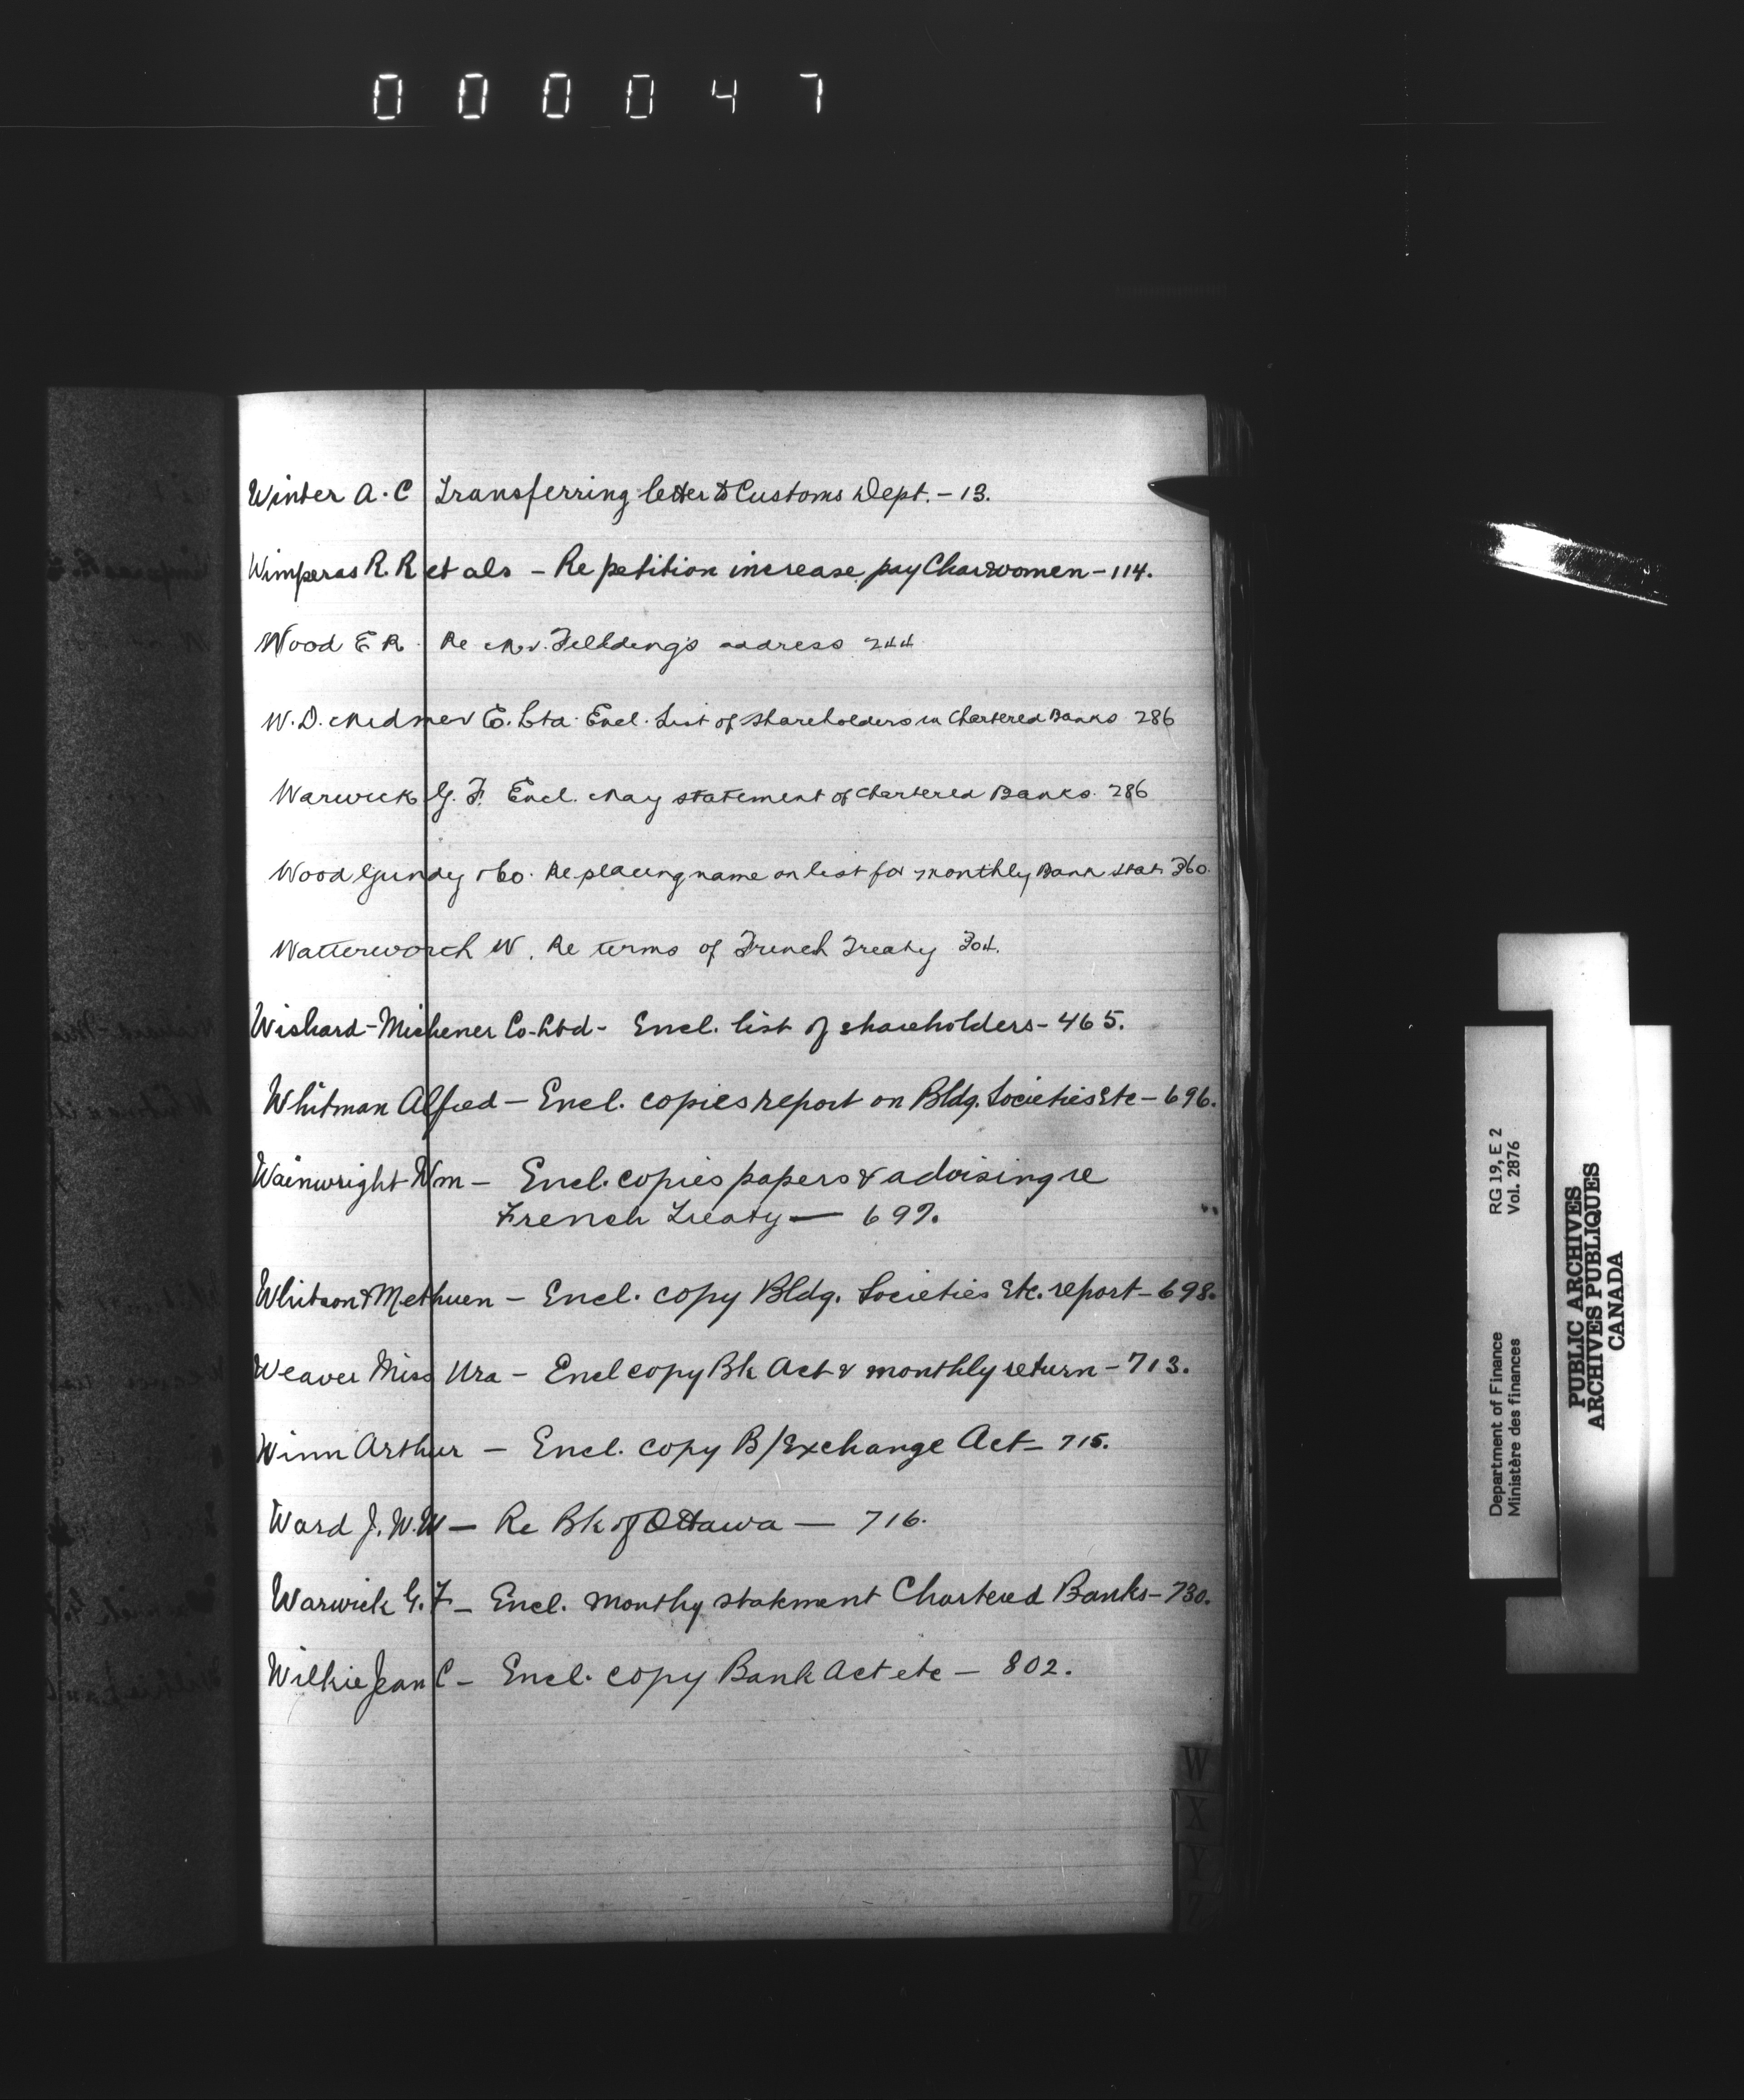 000047
Winter A. C Transferring letter to Customs Dept. - 13.
Wimperas R. R et als - Re petition increase pay Charwomen - 114.
Wood E R. Re Mr. Fielding's address 244
W. D. Co. Ltd. Encl. List of Shareholders in Chartered Banks 286
Warwick G. F. Encl. May statement of Chartered Banks. 286
Wood Gundy & Co. Re placing name on list for monthly Bank stat. 360.
Watterworth W. Re terms of French Treaty 304.
Wishard-Michener Co-Ltd - Encl. list of shareholders - 465.
Whitman Alfred - Encl. copies report on Bldg. Societies Etc - 696.
Wainwright Wm - Encl. copies papers & advising re
French Treaty - 697.
Whitson & Methuen - Encl. copy Bldg. Societies Etc. report - 698.
Weaver Miss Ura - Encl copy Bk Act & monthly return - 713.
Winn Arthur - Encl. copy B/Exchange Act - 715.
Ward J. W. W - Re Bk of Ottawa - 716.
Warwick G. F - Encl. monthy statement Chartered Banks - 730.
Wilkie Jean C - Encl. copy Bank Act etc - 802.
W
X
Y
Z
Department of Finance RG 19, E 2
Ministère des finances Vol. 2876
PUBLIC ARCHIVES
ARCHIVES PUBLIQUES
CANADA